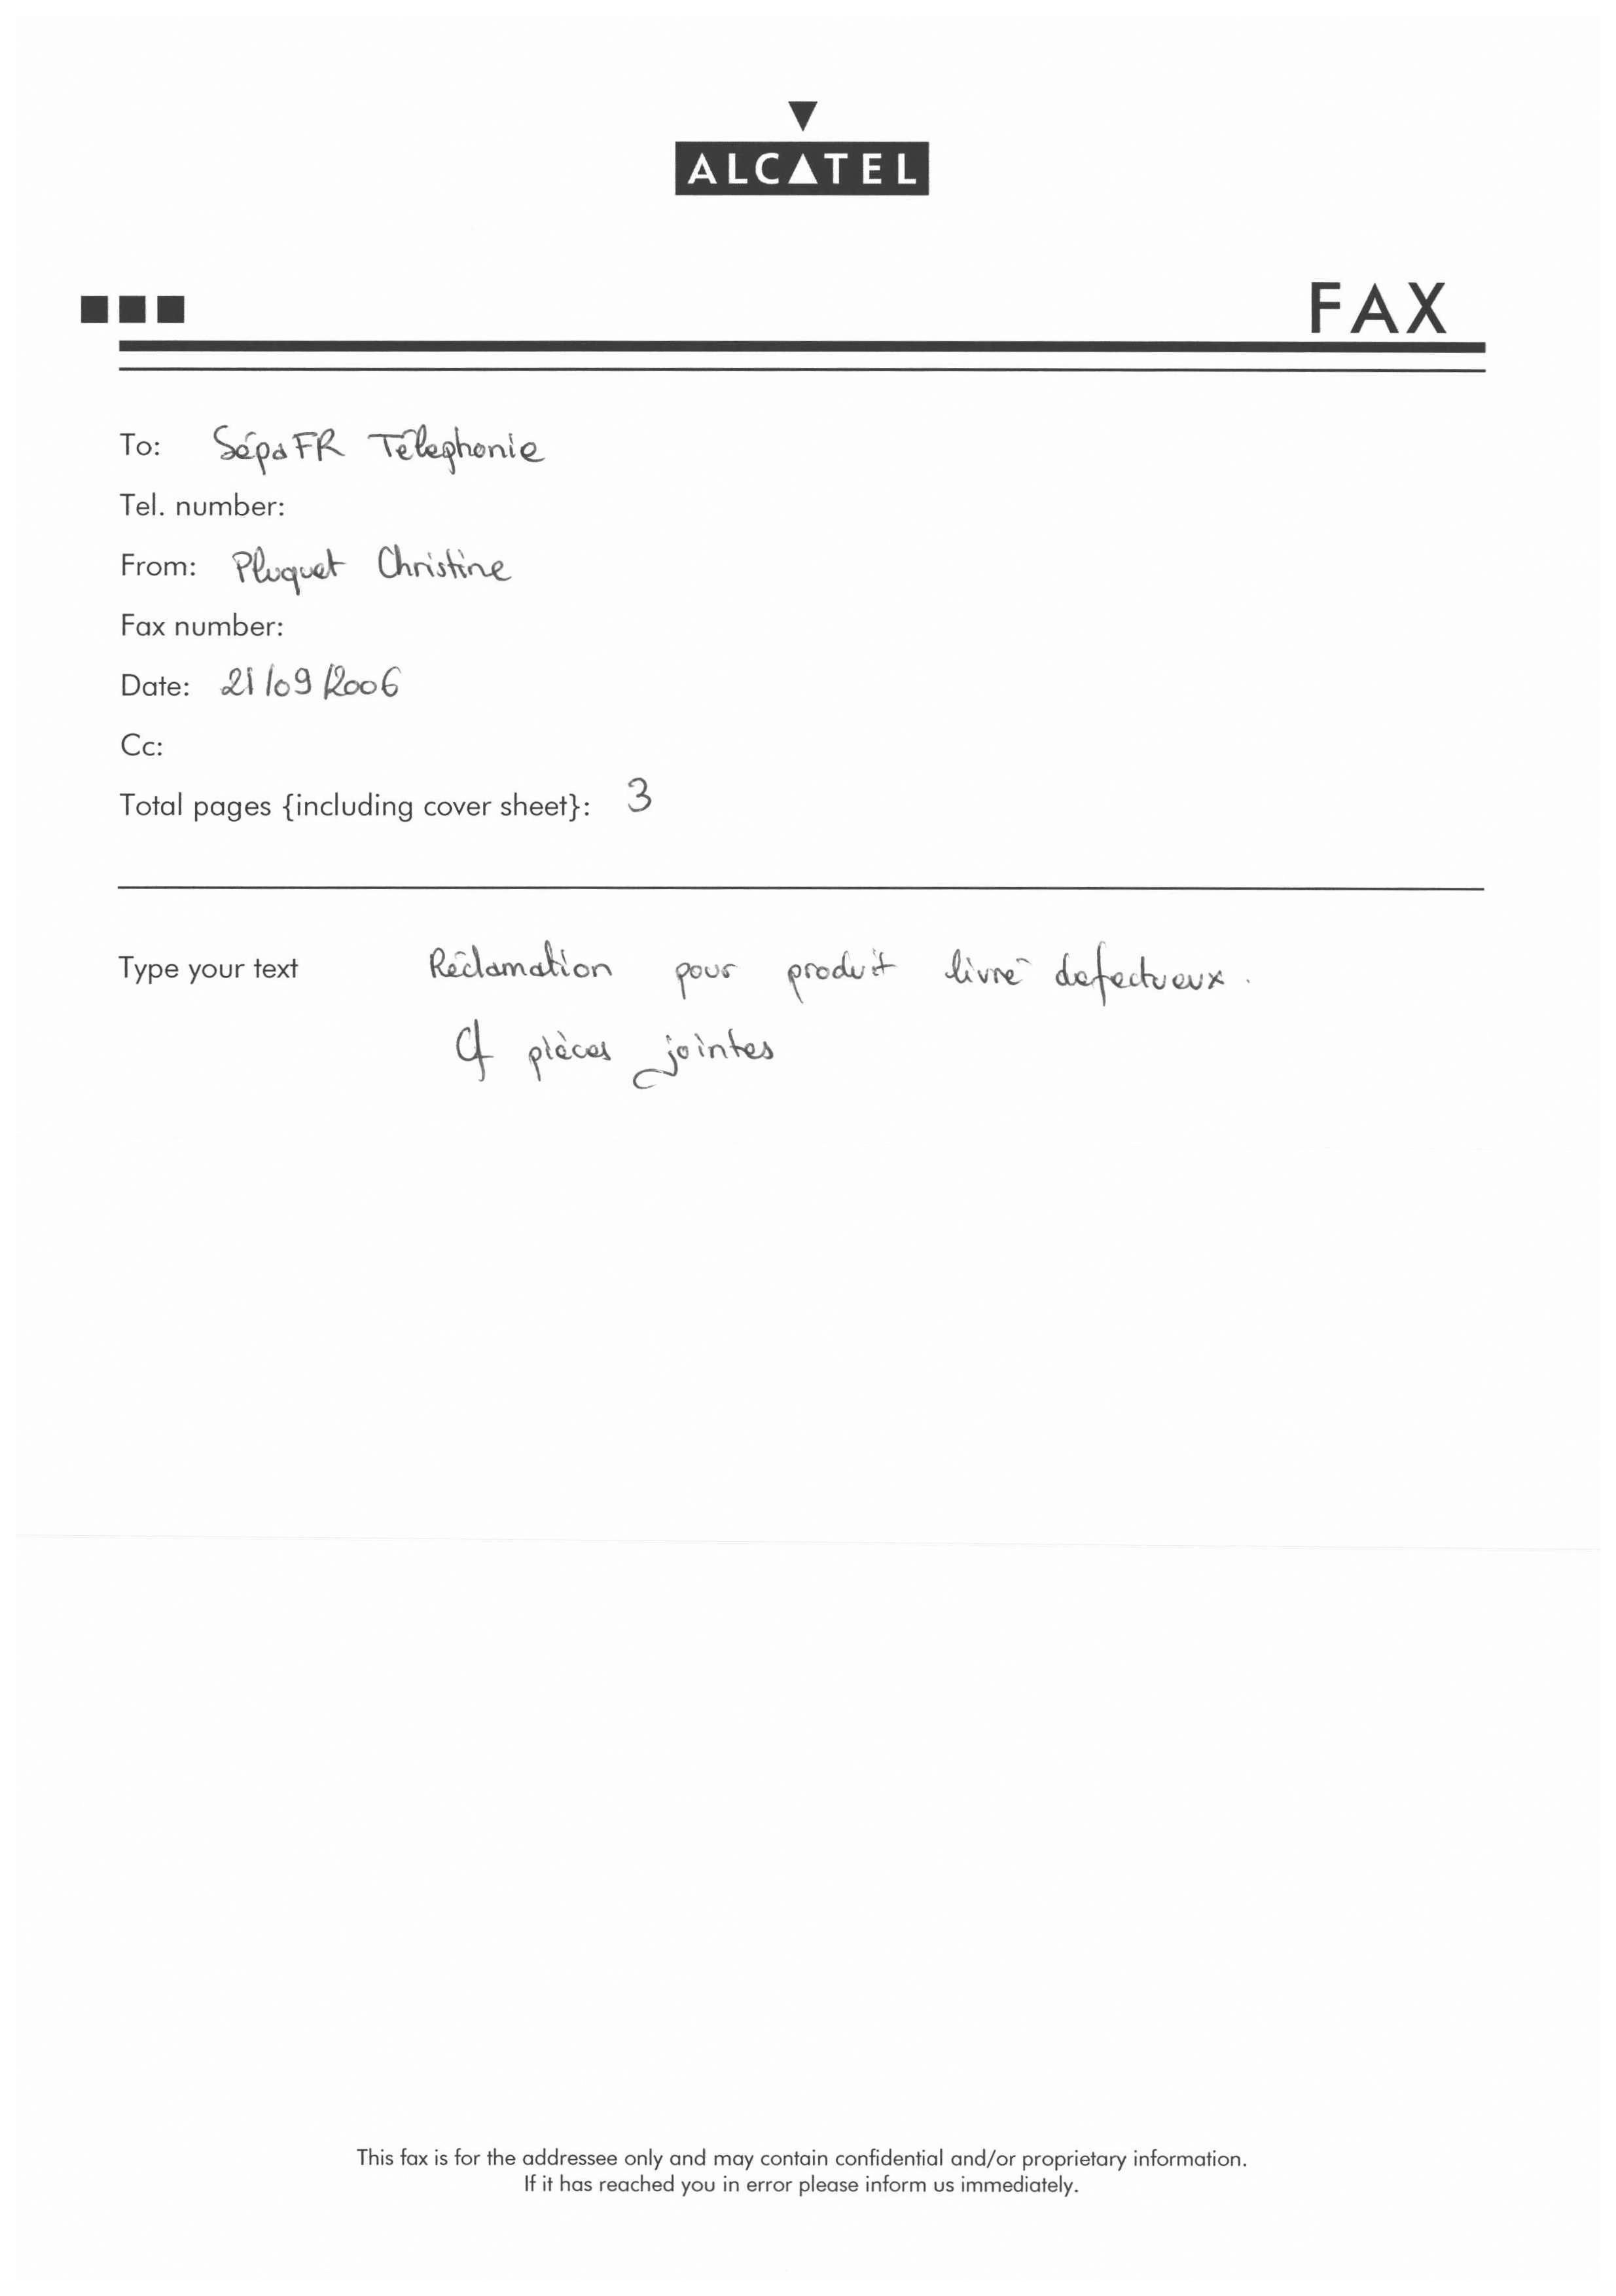 ALCATEL
FAX
To: SépaFR Télephonie
Tel. number:
From: Pluquet Christine
Fax number:
Date: 21/09/2006
Cc:
Total pages {including cover sheet}: 3
Type your text Réclamation pour produit livré defectueux.
Cf pièces jointes
This fax is for the addressee only and may contain confidential and/or proprietary information.
If it has reached you in error please inform us immediately.